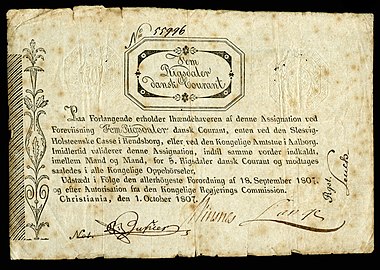 No 55996
Fem
Rigsdaler
dansk Courant
Paa Forlangende erholder Ihændehaveren af denne Assignation ved
Foreviisning Fem Rigsdaler dansk Courant, enten ved den Slesvig-
Holsteenske Casse i Rendsborg, eller ved den Kongelige Amtstue i Aalborg.
Imidlertid validerer denne Assignation, indtil samme vorder indkaldt,
imellem Mand og Mand, for 5. Rigsdaler dansk Courant og modtages
saaledes i alle Kongelige Oppebörseler.
Udstædt i Følge den allerhöigste Forordning af 18. September 1807.
og efter Autorisation fra den Kongelige Regjerings Commission.
Christiania, den 1. October 1807.